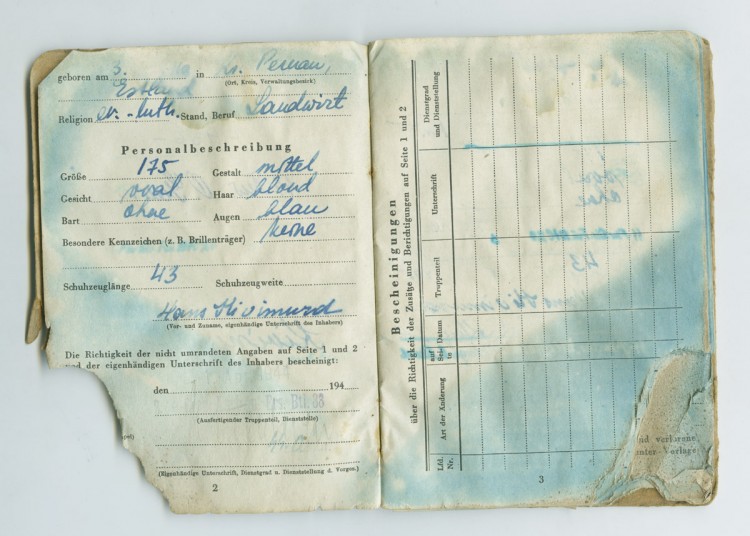 geboren am 3. in Kr. Pernau,
(Ort, Kreis, Verwaltungsbezirk)
Estland
Religion ev.-luth. Stand, Beruf Landwirt
Personalbeschreibung
Größe 175 Gestalt mittel
Gesicht oval Haar blond
Bart ohne Augen blau
Besondere Kennzeichen (z. B. Brillenträger) keine
Schuhzeuglänge 43 Schuhzeugweite
Hans
(Vor- und Zuname, eigenhändige Unterschrift des Inhabers)
Die Richtigkeit der nicht umrandeten Angaben auf Seite 1 und 2
und der eigenhändigen Unterschrift des Inhabers bescheinigt:
den 194
(Ausfertigender Truppenteil, Dienststelle)
(Eigenhändige Unterschrift, Dienstgrad u. Dienststellung d. Vorges.)
2
Bescheinigungen
über die Richtigkeit der Zusätze und Berichtigungen auf Seite 1 und 2
Lfd. Nr.
Art der Änderung
auf Seite
Datum
Truppenteil
Unterschrift
Dienstgrad
und Dienststellung
43
und verlorene
unter Vorlage
3